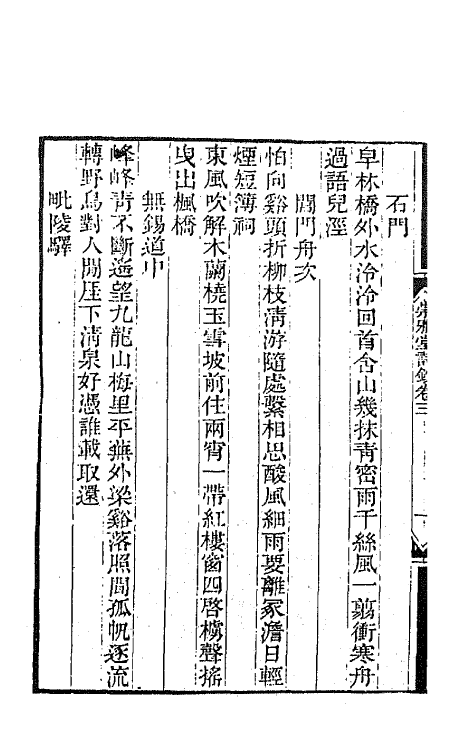 石門
皐林橋外水泠泠回首含山幾抹青密雨千絲風一翦衝寒舟
過語兒涇
閶門舟次
怕向谿頭折柳枝清游隨處繫相思酸風細雨要離冢澹日輕
煙短簿祠
東風吹解木蘭橈玉雪坡前住兩宵一帶紅樓窗四啓櫓聲搖
曳出楓橋
無錫道中
峰峰青不斷遥望九龍山梅里平蕪外梁谿落照間孤帆逐流
轉野鳥對人閒厓下清泉好憑誰載取還
毗陵驛
崇雅堂詩鈔卷三